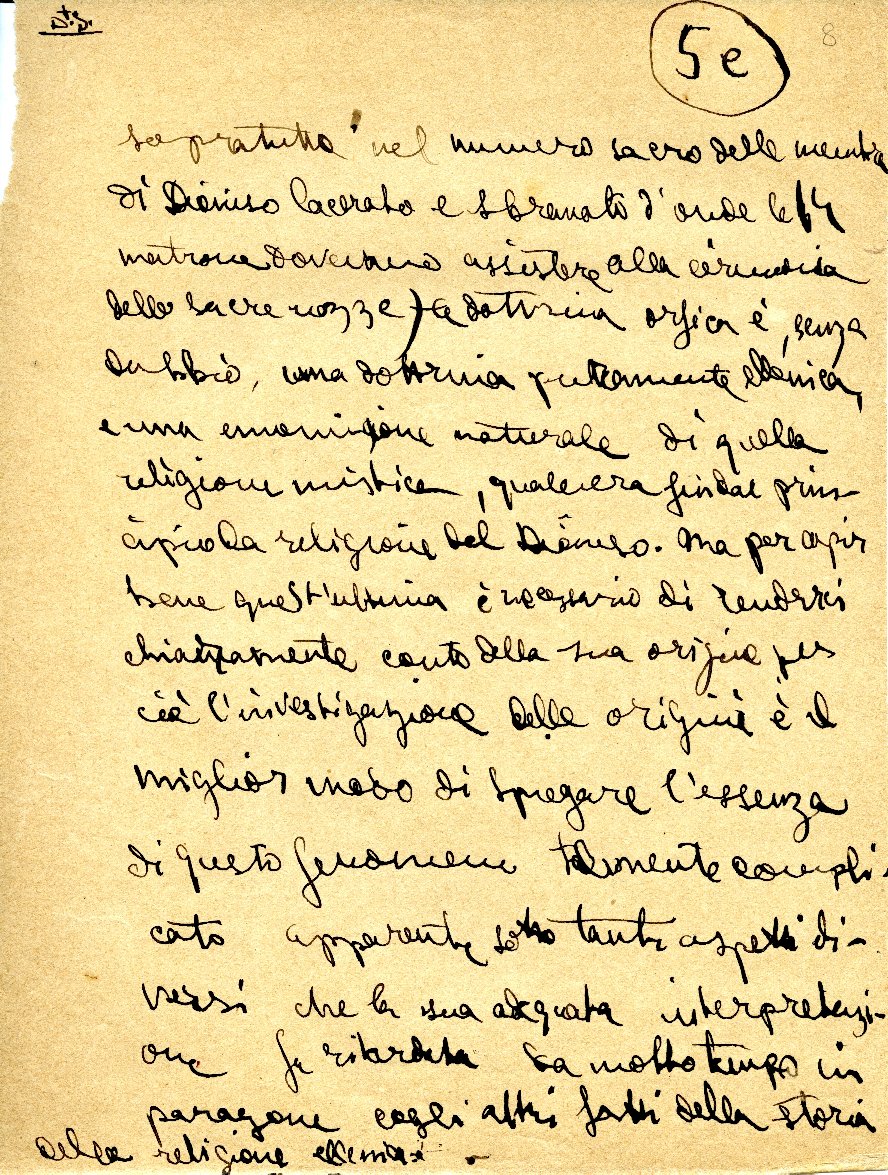 5e
8
sopratutto nel numero sacro delle membra
di Dioniso lacerato e sbranato d'onde le 14
matrone dovevano assistere alla cerimonia
delle sacre nozze) la dottrina orfica è, senza
dubbio, una dottrina puramente ellenica,
e una emanazione naturale di quella
religione mistica, quale era sin dal prin-
cipio la religione del Dioniso. Ma per capir
bene quest'ultima è necessario di rendersi
chiaramente conto della sua origine per
ciò l'investigazione delle origini è il
miglior modo di spiegare l'essenza
di questo fenomeno talmente compli-
cato apparente sotto tanti aspetti di-
versi che la sua adeguata interpretazi-
one fu ritardata da molto tempo in
paragone cogli altri fatti della storia
della religione ellenica.